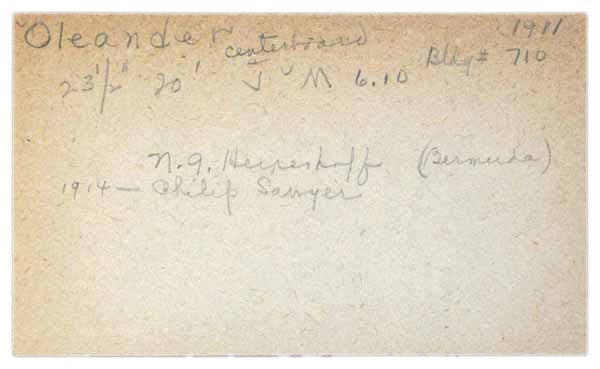 "Oleander centerboard 1911
23 1/2" 20' J & M 6.10 Bldg # 710
N. G. Herreshoff (Bermuda)
1914 — Philip Sawyer